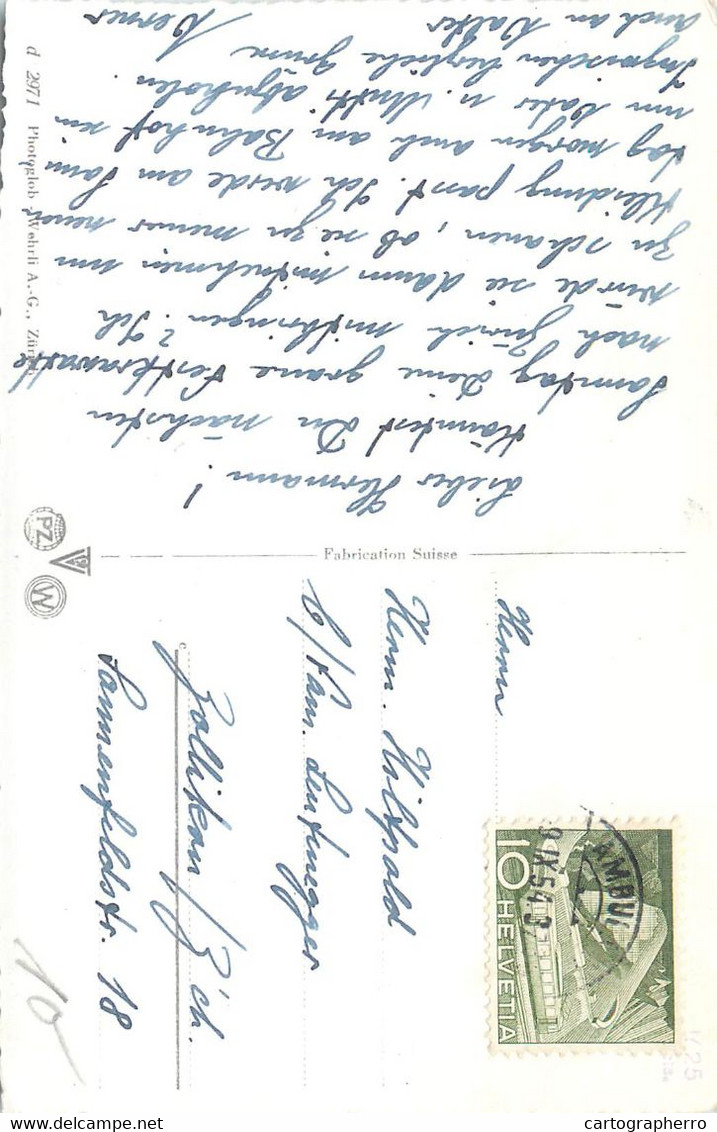 Lieber Hermann!
Könntest Du nächsten
Samstag Deine graue Festkravatte
nach Zürich mitbringen? Ich
würde sie dann mitnehmen um
zu schauen, ob sie zu meiner neuen
Kleidung passt. Ich werde am Sonn
tag morgen auch am Bahnhof sein
um Vater u. Mutti abzuholen.
Inzwischen herzliche Grüsse
auch an Walter Werner
d 2971 Photoglob-Wehrli A.-G., Zürich
Fabrication Suisse
PZ
W
Herrn
Herm. Hilfpald
b/Fam. Leutenegger
Zollikon/Zch.
Sonnenfeldstr. 18
10 HELVETIA
AMBU
9.IX.54.
10
K25
cartographerro